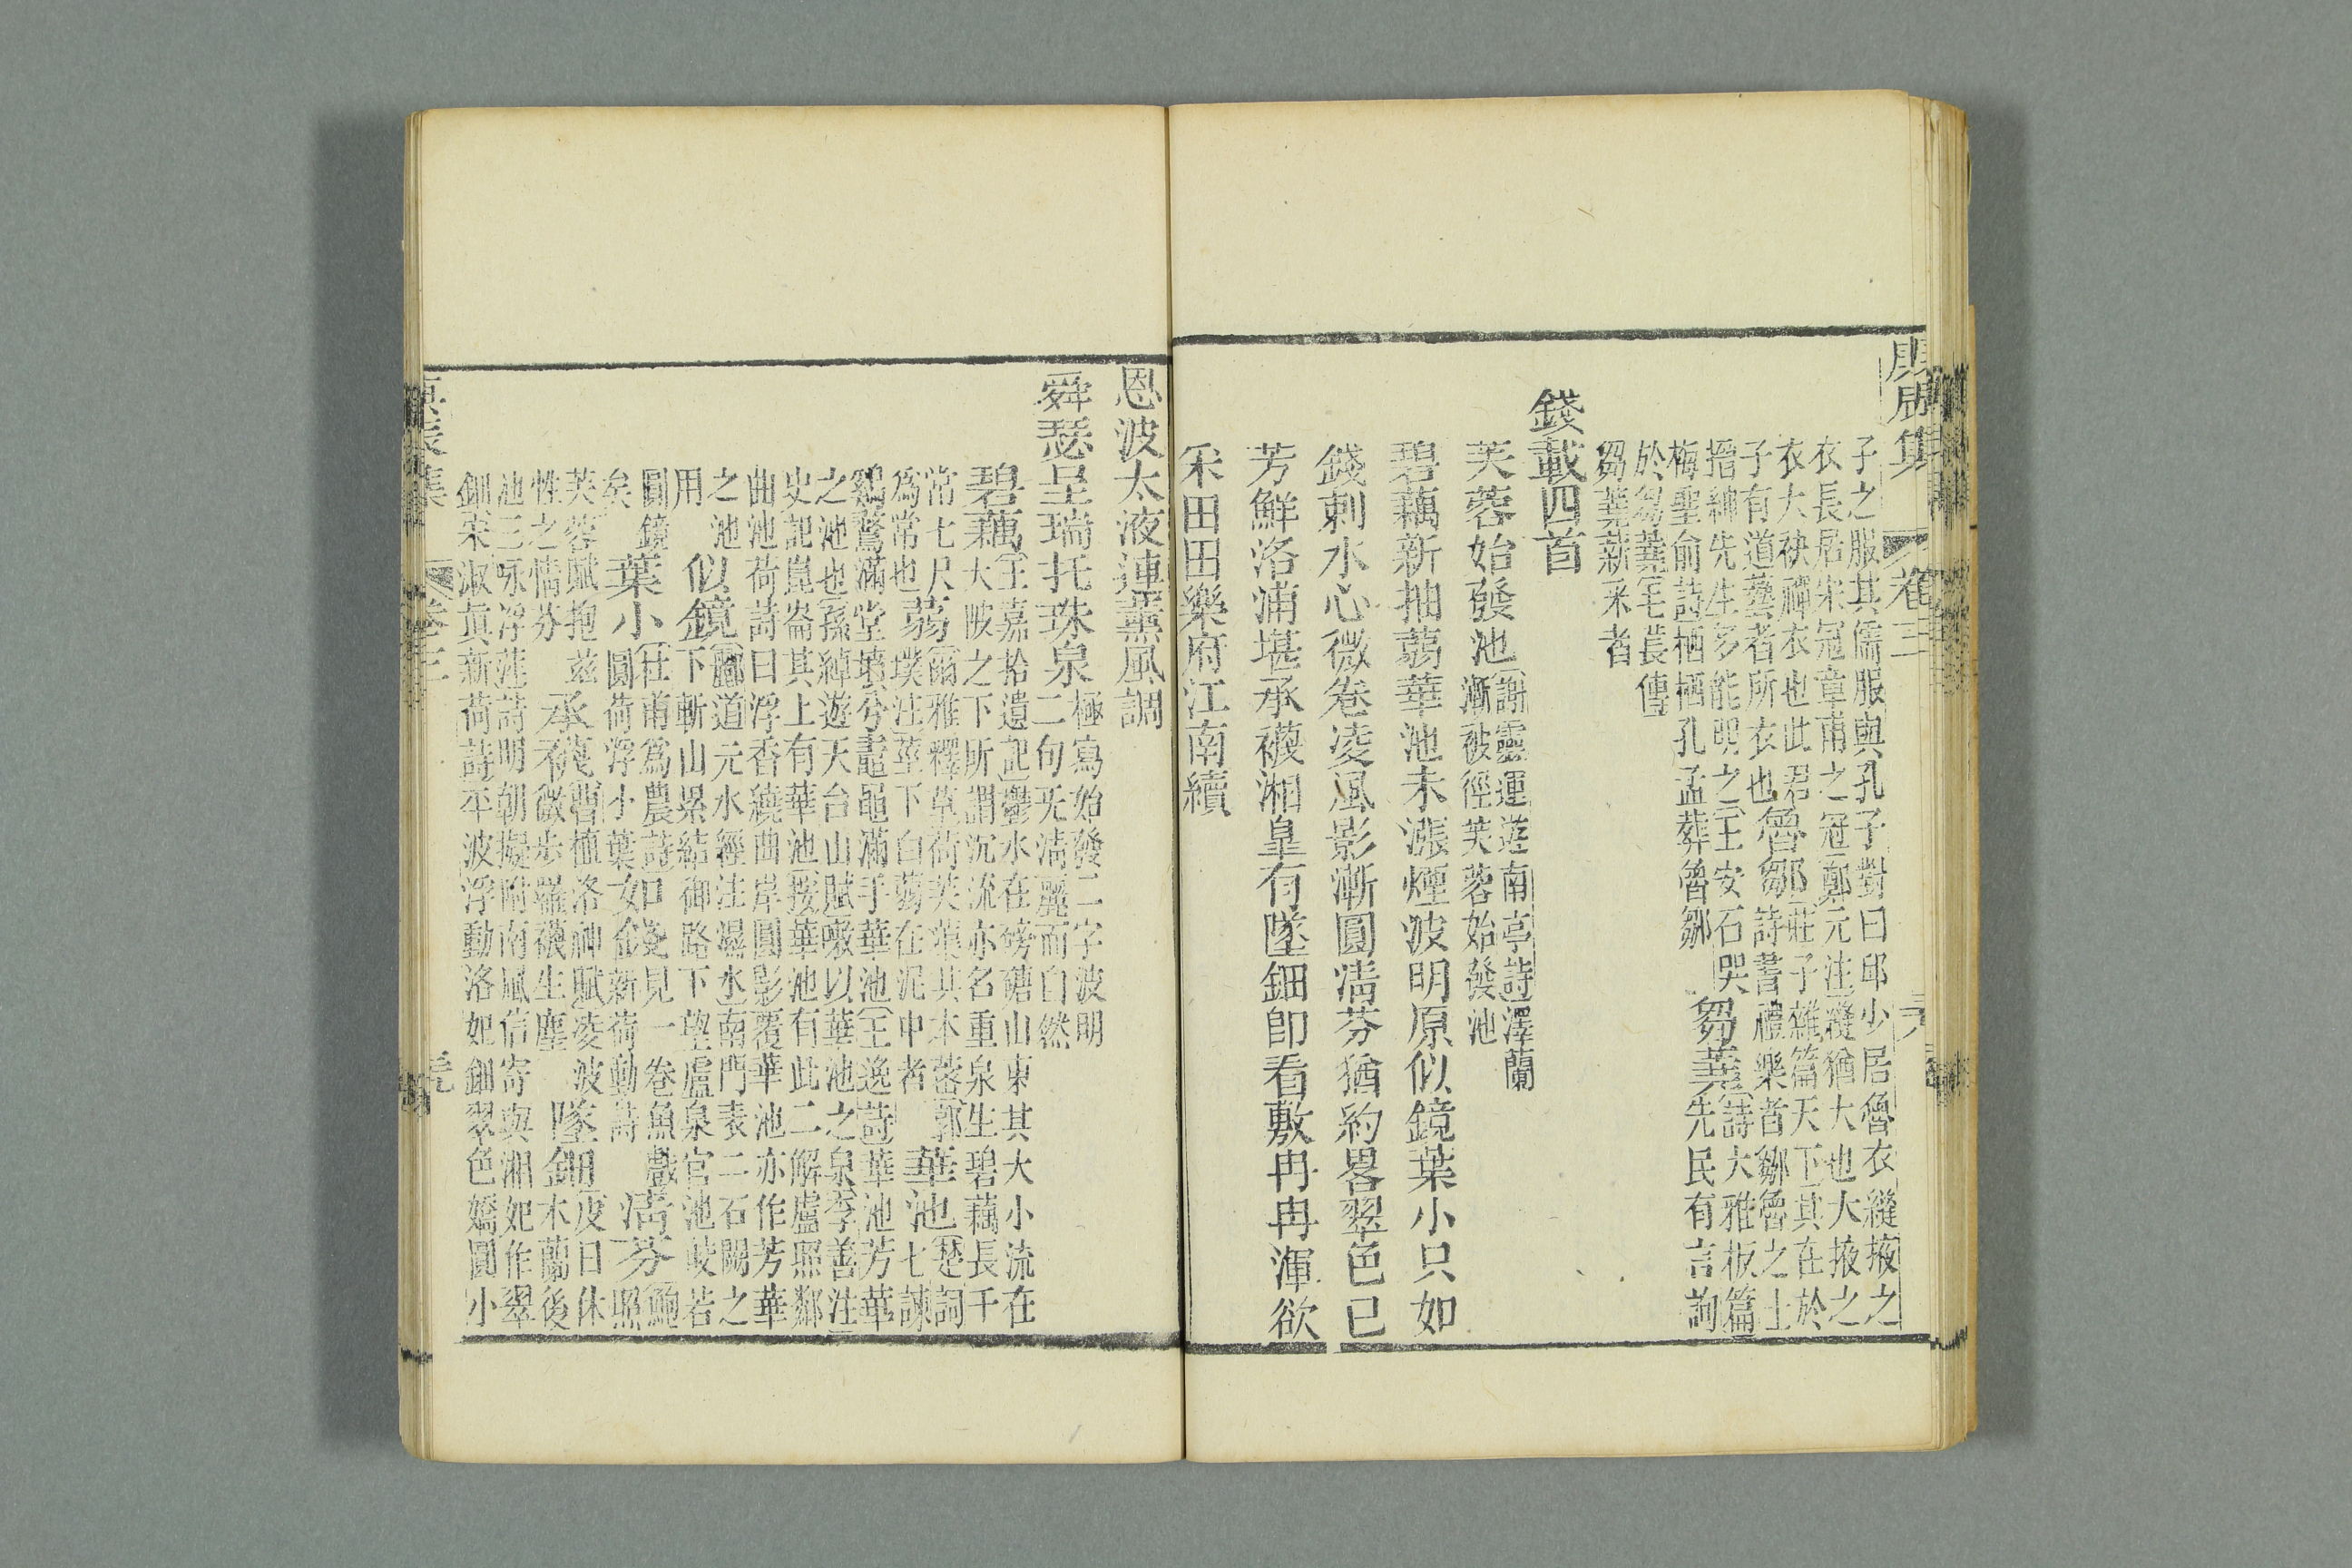 子之服其儒服與孔子對曰邱少居魯衣縫掖之
衣長居宋冠章甫之冠鄭元注縫猶大也大掖之
衣大袂襌衣也此君子有道藝者所衣也
魯鄒莊子雜篇天下其在於詩書禮樂者鄒魯之士
搢紳先生多能明之王安石哭梅聖俞詩栖栖孔孟葬魯鄒
芻蕘詩大雅板篇先民有言詢於芻蕘毛萇傳芻蕘薪采者
錢載四首
芙蓉始發池謝靈運遊南亭詩澤蘭漸被徑芙蓉始發池
碧藕新抽蒻華池未漲煙波明原似鏡葉小只如
錢刺水心微卷凌風影漸圓淸芬猶約畧翠色已
芳鮮洛浦堪承襪湘皇有墜鈿卽看敷冉冉渾欲
采田田樂府江南續
恩波太液連薰風調
舜瑟呈瑞托珠泉極寫始發二字波明二句旡淸麗而自然
碧藕王嘉拾遺記鬱水在磅磄山東其大小流在
大陂之下所謂沉流亦名重泉生碧藕長千
常七尺為常也
蒻爾雅釋草荷芙蕖其本蔤郭璞注莖下白蒻在泥中者
華池楚詞七諫
鷄鶩滿堂壇兮鼃黽滿手華池王逸詩華池芳華
之池也孫綽遊天台山賦嗽以華池之泉李善注
史記崑崙其上有華池按華池有此二解盧照鄰
曲池荷詩曰浮香繞曲岸圓影覆華池亦作芳華
之池用
似鏡酈道元水經注濕水南門表二石闕之
下斬山累結御路下望盧泉官池皎若
圓鏡矣
葉小杜甫爲農詩
圓荷浮小葉
如錢見一卷魚戲新荷動詩
淸芬鮑照
芙蓉賦抱兹性之情芬
承襪曹植洛神賦凌波微步羅襪生塵
墜鈿皮日休木蘭後
池三咏浮萍詩明朝擬附南風信寄與湘妃作翠
鈿朱淑真新荷詩平波浮動洛妃鈿翠色嬌圓小
卷三